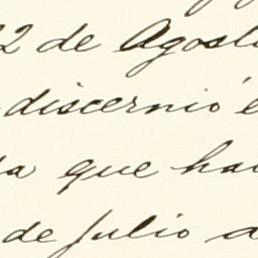 2 de Agosto
discernió e
a que ha
de Julio a